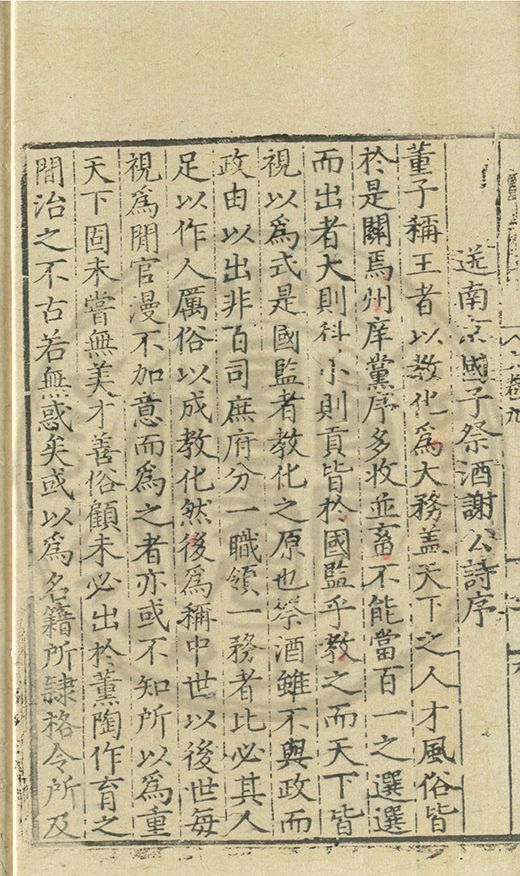 送南京國子祭酒謝公詩序
董子稱王者以教化為大務盖天下之人才風俗皆
於是關焉州庠黨序多收並畜不能當百一之選選
而出者大則科小則貢皆於國監乎教之而天下皆
視以為式是國監者教化之原也祭酒雖不與政而
政由以出非百司庶府分一職領一務者比必其人
足以作人厲俗以成教化然後為稱中世以後世每
視為閒官漫不加意而為之者亦或不知所以為重
天下固未嘗無美才善俗顧未必出於薰陶作育之
間治之不古若無惑矣或以為名籍所隸格令所及